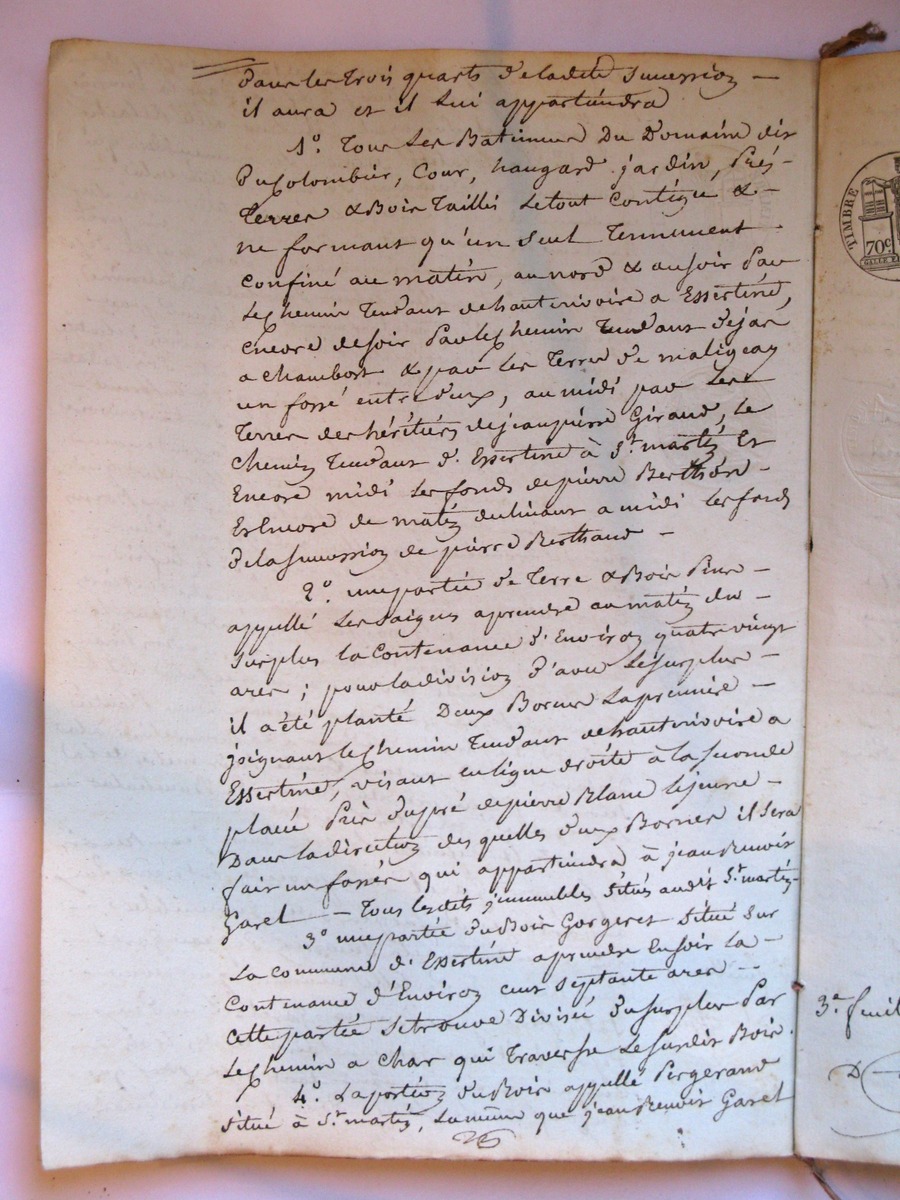 Dans les trois quarts de ladite succession —
il aura et il lui appartiendra
1°. Tous les Batiments du Domaine dit
Du Colombier, Cour, hangard jardin, Prés –
Terres & Bois Taillis le tout contigu & –
ne formant qu'un seul Tennement
confiné au matin, au nord & au soir par
le chemin Tendant de hauterivoire a Essertine,
encore de soir par le chemin Tendant de jas
a chambost & par les Terres de
un fossé entre deux, au midi par les
Terres des héritiers de jean pierre Giraud, le
chemin Tendant d'Essertine à St. martin Et
Encore midi les fonds de pierre Berthon –
Et Encore de matin declinant a midi les fonds
de la succession de pierre Berthaud –
2°. une partie de Terre & Bois Pins –
appellé les saignes aprendre au matin du –
surplus la contenance d'Environ quatre vingt
ares ; pour la division d'avec le surplus –
il a été planté Deux Bornes la premiere –
joignant le chemin Tendant de hauterivoire a
Essertine, visant en ligne droite à la seconde
placée Près du pré de pierre Blanc le jeune –
Dans la direction des quelles deux Bornes il sera
fait un fossée qui appartiendra à jean Benoit
Garel — Tous lesdits jmmeubles situés audit St. martin –
3° une partie du Bois Gorgeret situé sur
La commune d'Essertine aprendre en soir la –
contenance d'Environ cent septante ares –
cette partie se trouve Divisée du surplus Par
le chemin a char qui Traverse le susdit Bois.
4°. La portion du Bois appellé Pergerand
situé à St. martin, la même que jean Benoit Garel
TIMBRE
70c
3e. feuil
D